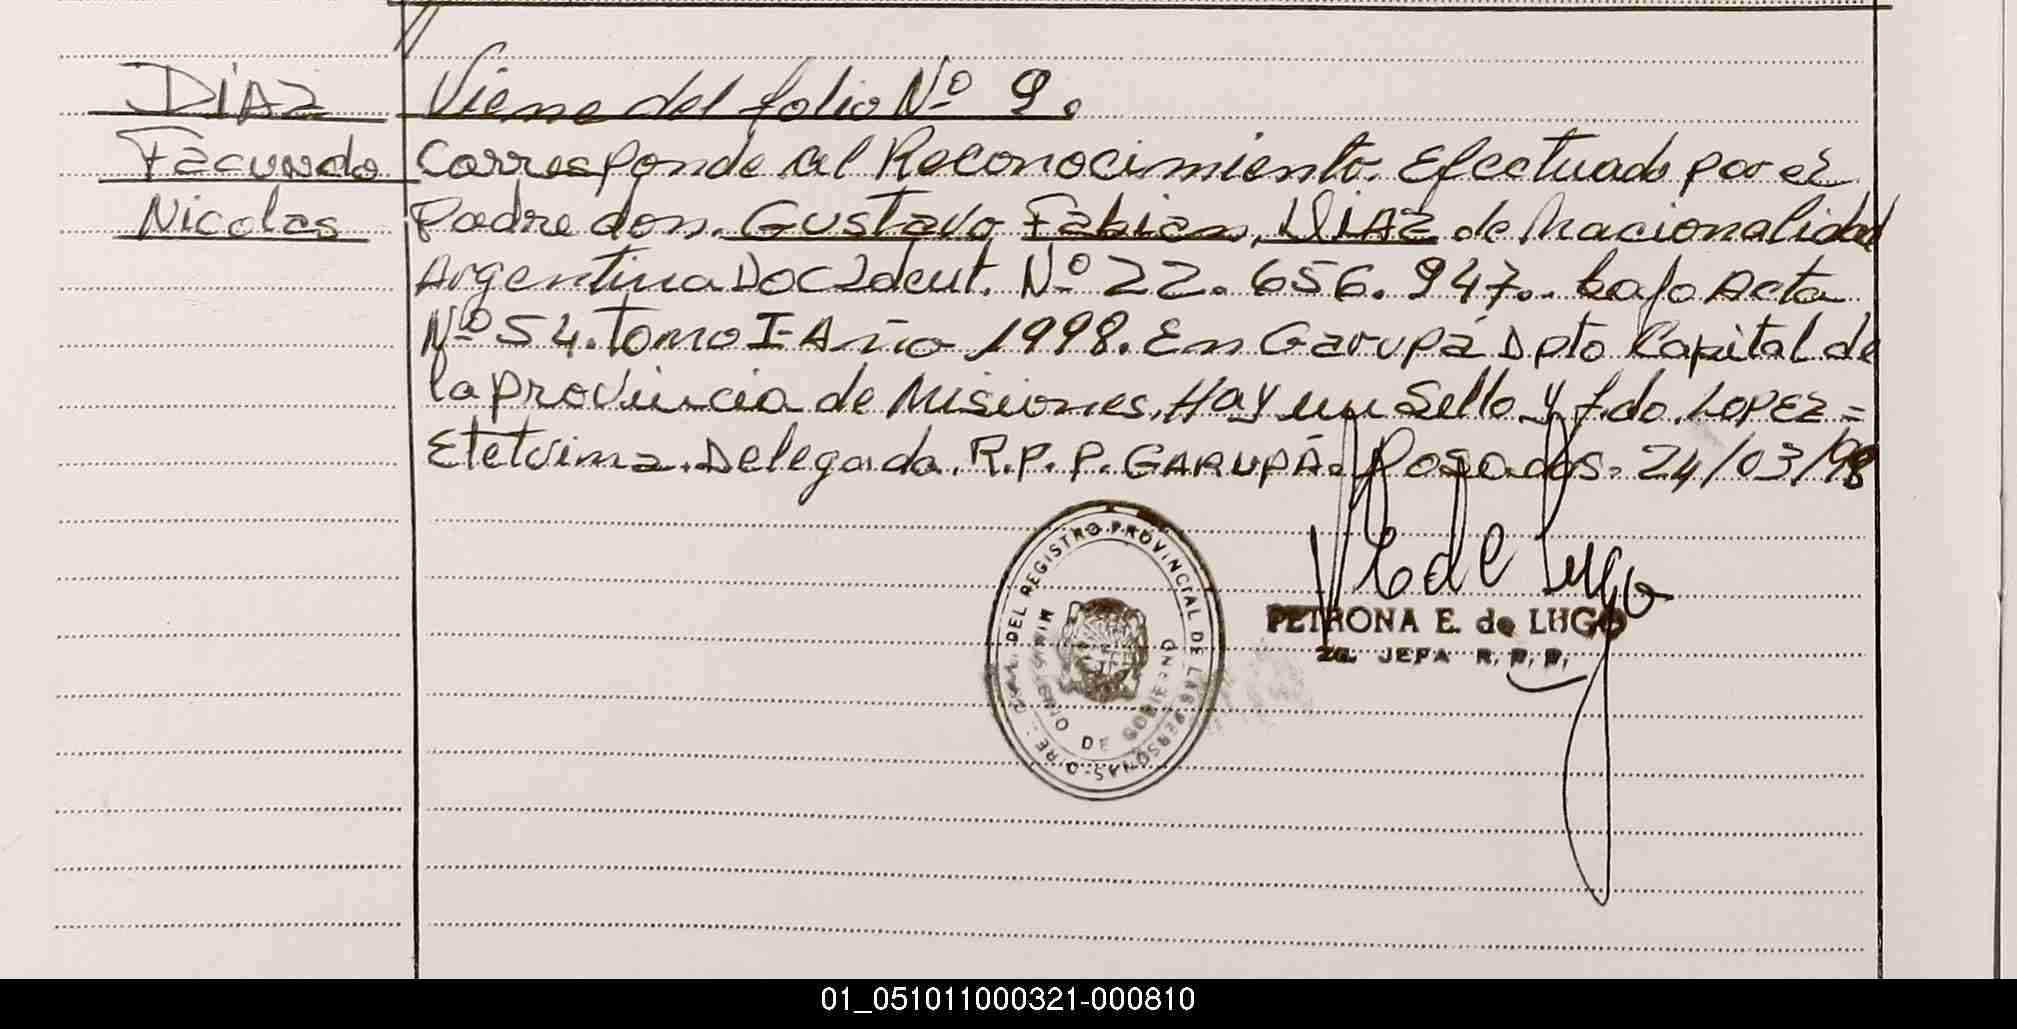 DIAZ
Facundo
Nicolas
Viene del folio Nº 9.
Corresponde al Reconocimiento. Efectuado por el
Padre don. Gustavo Fabian, DIAZ de Nacionalidad
Argentina Doc Ident. Nº 22.656.947.. bajo Acta
Nº 54. Tomo I-Año 1998. En Garupá Dpto Capital de
la Provincia de Misiones. Hay un Sello y f.do. LOPEZ =
Etelvina. Delegada. R.P.P. GARUPÁ. Posadas. 24/03/98
de Lugo
PETRONA E. de LUGO
JEFA R.P.P.
DEL REGISTRO PROVINCIAL DE LAS PERSONAS
DE GOBIERNO
01_051011000321-000810